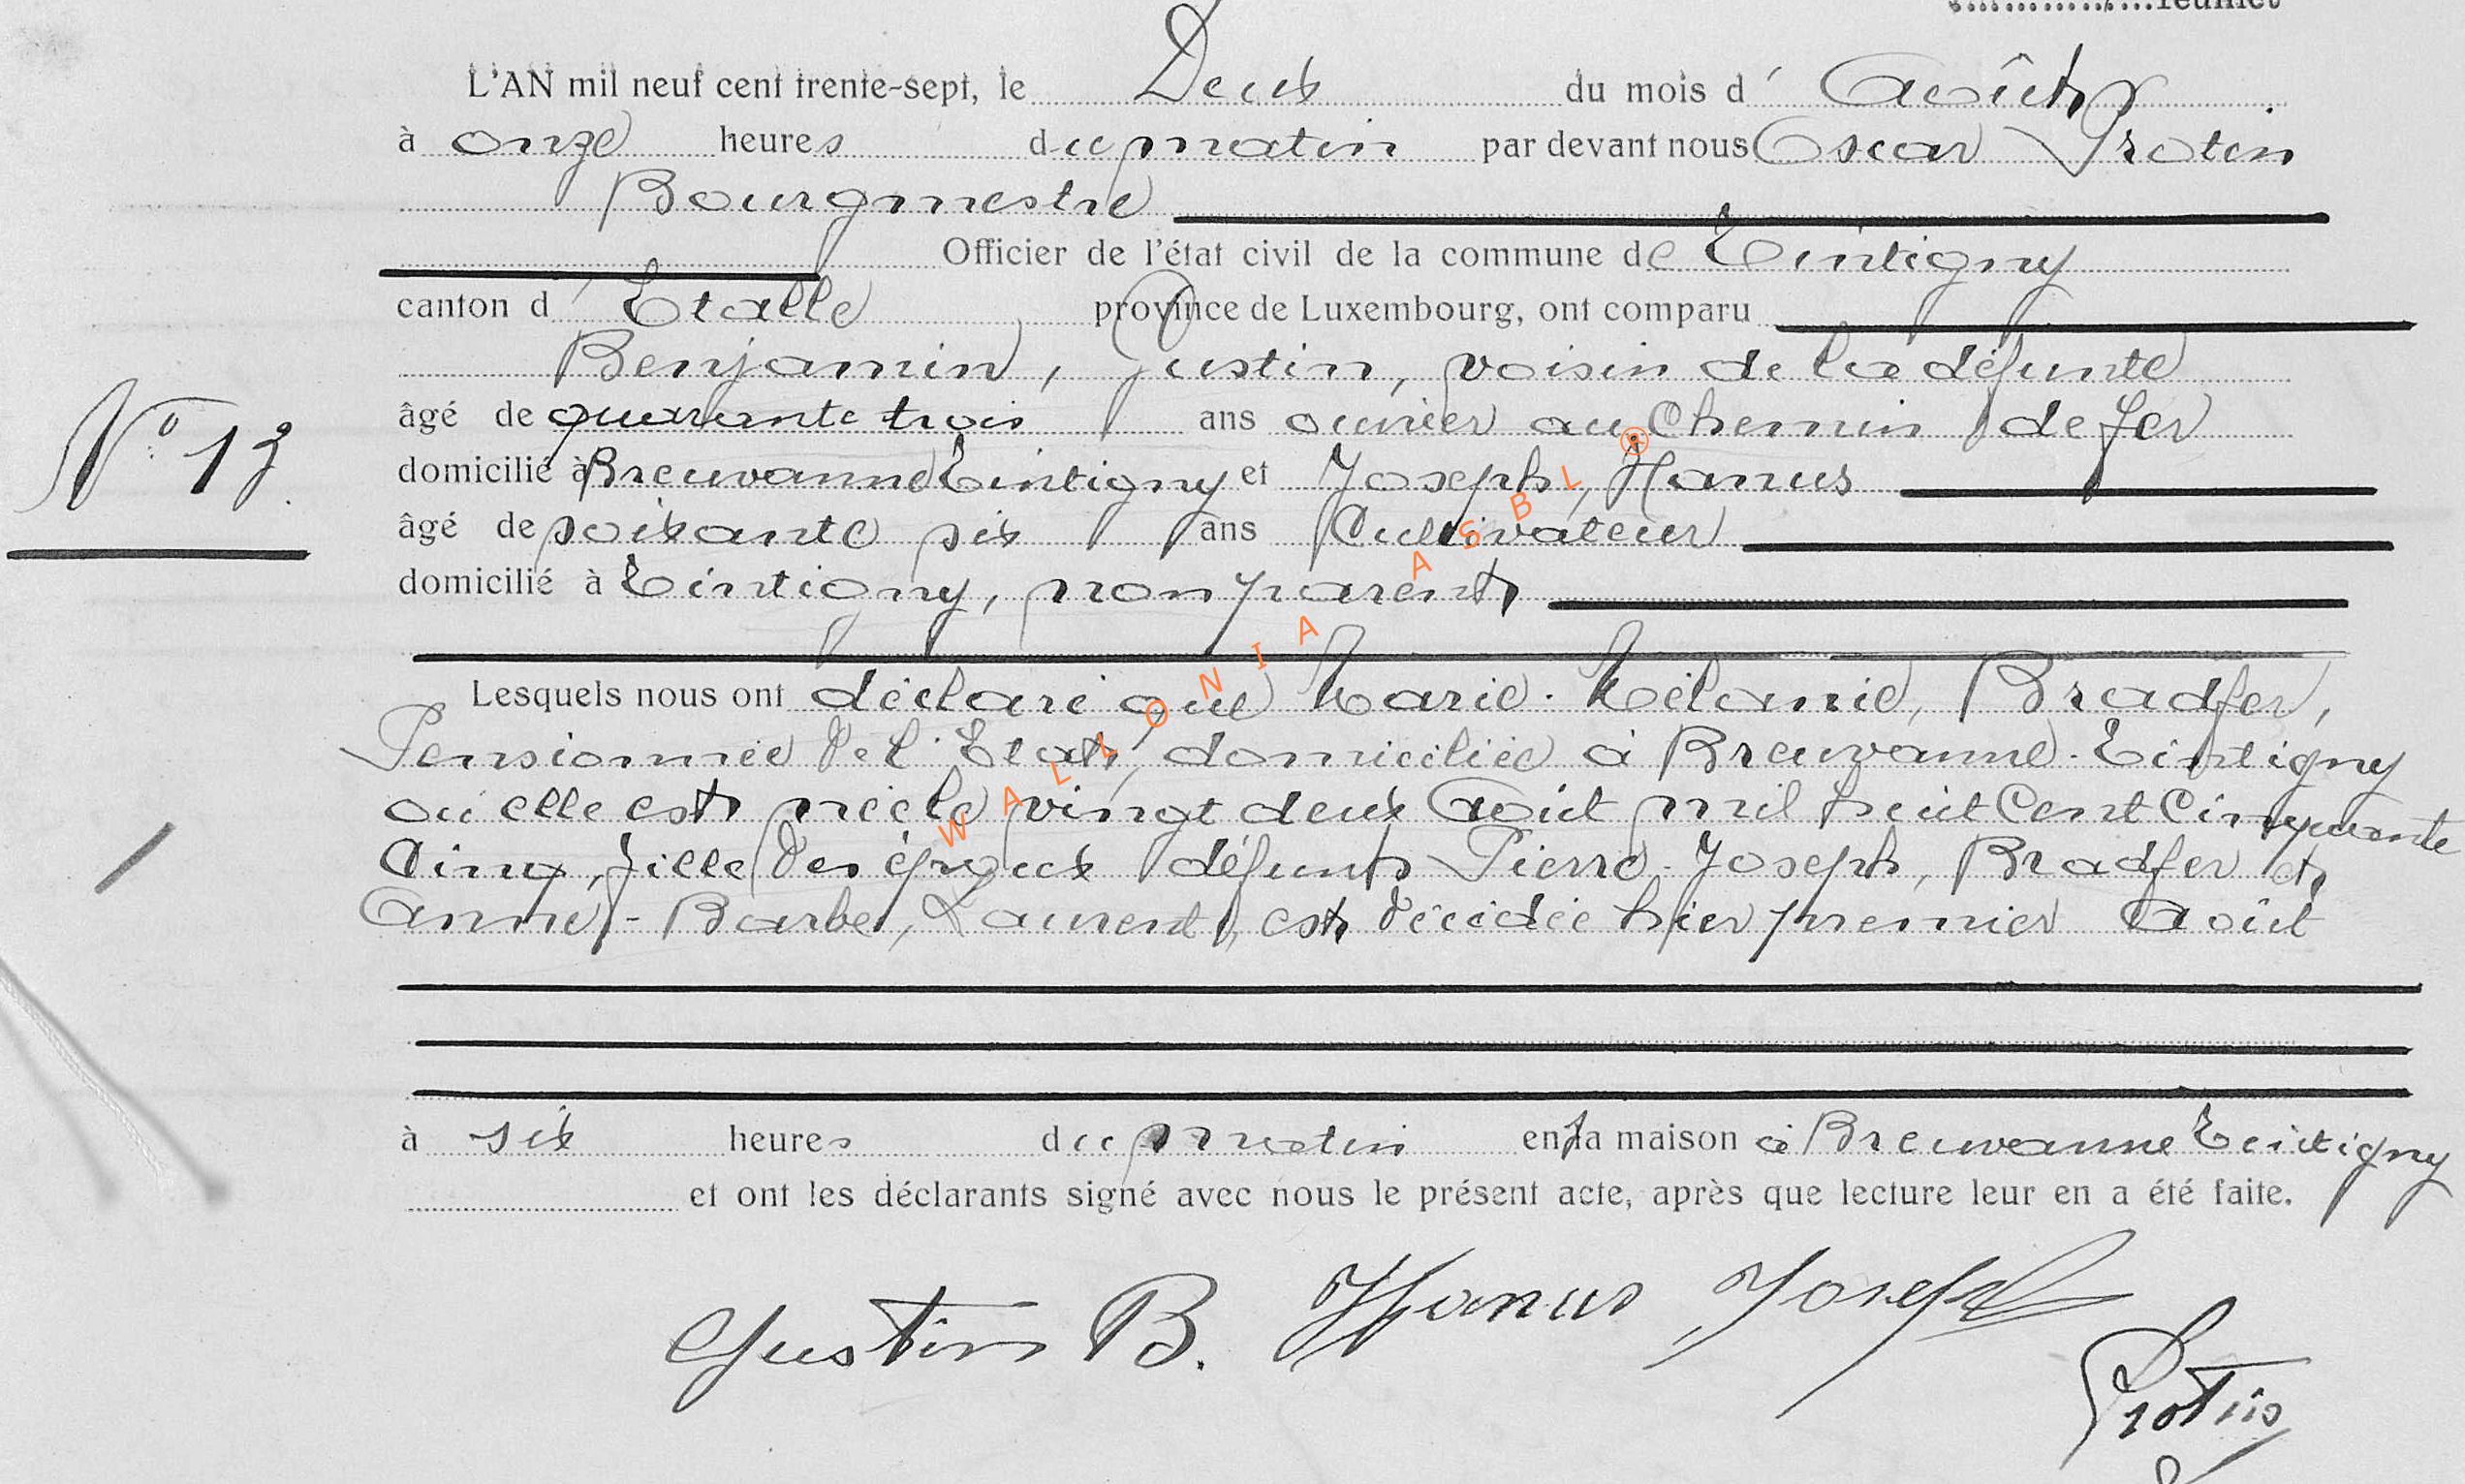 feuillet
L'AN mil neuf cent trente-sept, le Deux du mois d' Août
à onze heures du matin par devant nous Oscar Protin
Bourgmestre
Officier de l'état civil de la commune de Tintigny
canton d' Etalle province de Luxembourg, ont comparu
Benjamin, Justin, voisin de la défunte
âgé de quarante trois ans ouvrier au Chemin de fer
domicilié à Breuvanne Tintigny et Joseph, Hanus
N° 13
âgé de soixante six ans Cultivateur
domicilié à Tintigny, non parent
Lesquels nous ont déclaré que Marie-Mélanie, Bradfer,
Pensionnée de l'Etat, domiciliée à Breuvanne-Tintigny
où elle est née le vingt deux Août mil huit Cent Cinquante
Cinq, fille des époux défunts Pierre-Joseph, Bradfer et
Anne-Barbe, Laurent, est décédée hier premier Août
à six heures du matin en la maison à Breuvanne Tintigny
et ont les déclarants signé avec nous le présent acte, après que lecture leur en a été faite.
Justin B. Hanus Joseph
Protin
WALLONIA ASBL ®